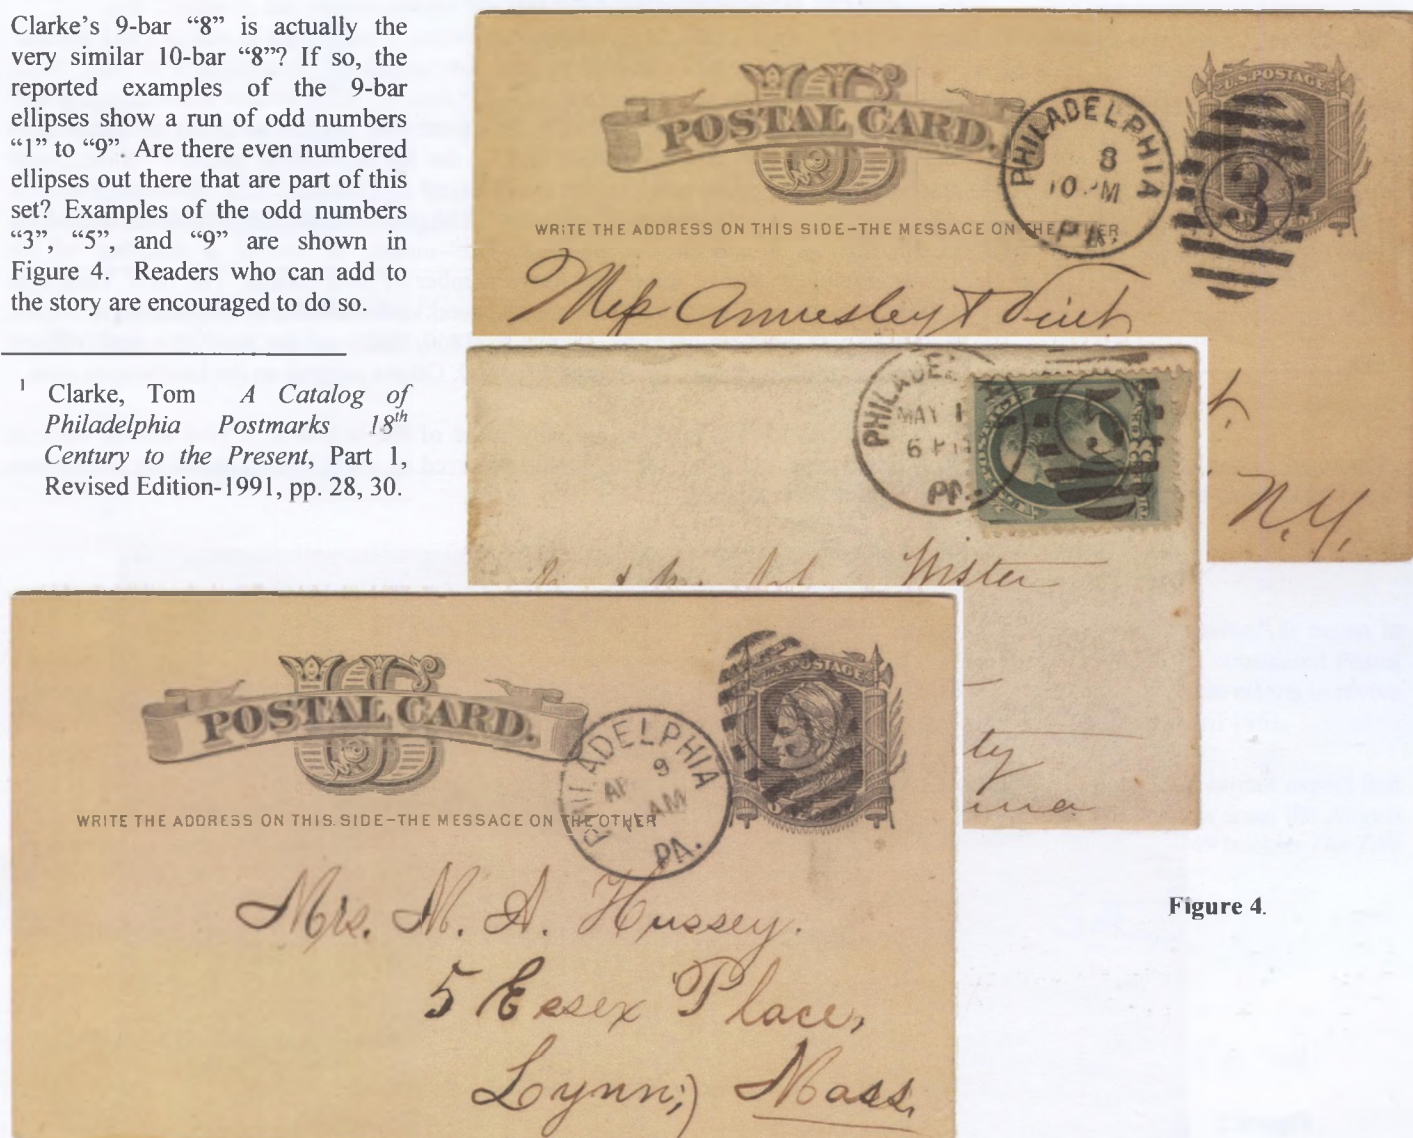 Clarke’s 9-bar “8” is actually the
very similar 10-bar “8”? If so, the
reported examples of the 9-bar
ellipses show a run of odd numbers
“1” to “9”. Are there even numbered
ellipses out there that are part of this
set? Examples of the odd numbers
“3”, “5”, and “9” are shown in
Figure 4. Readers who can add to
the story are encouraged to do so.
1 Clarke, Tom A Catalog of
Philadelphia Postmarks 18th
Century to the Present, Part 1,
Revised Edition-1991, pp. 28, 30.
U.S. POSTAGE
US
POSTAL CARD.
PHILADELPHIA
8
10 PM
PA.
3
WRITE THE ADDRESS ON THIS SIDE-THE MESSAGE ON THE OTHER
N.Y.
PHILADELPHIA
MAY 1
6 PM
PA.
5
Wister
ty
U.S. POSTAGE
US
POSTAL CARD.
PHILADELPHIA
9
AM
PA.
WRITE THE ADDRESS ON THIS SIDE-THE MESSAGE ON THE OTHER
Mrs. M. A. Hussey.
5 Essex Place,
Lynn, Mass.
Figure 4.